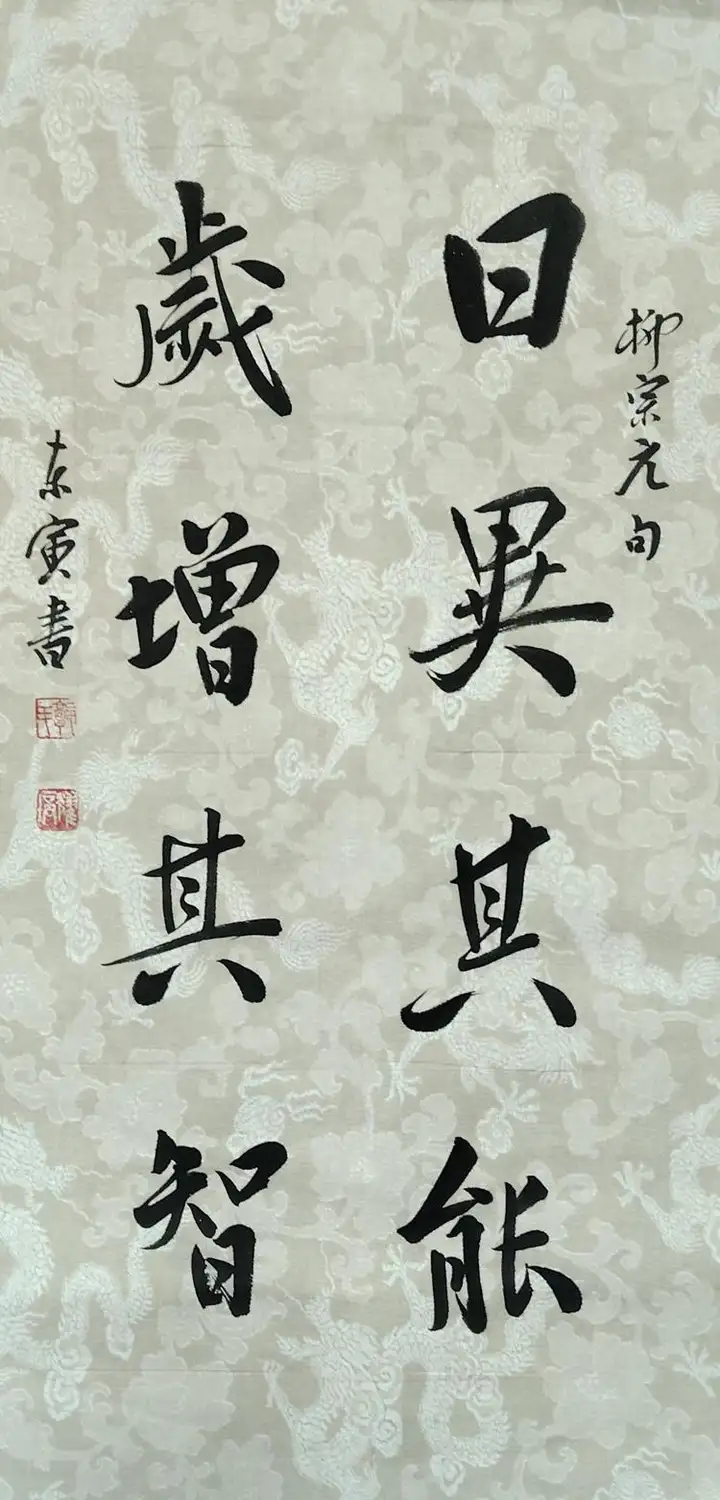 柳宗元句
日異其能
歲增其智
东寅書